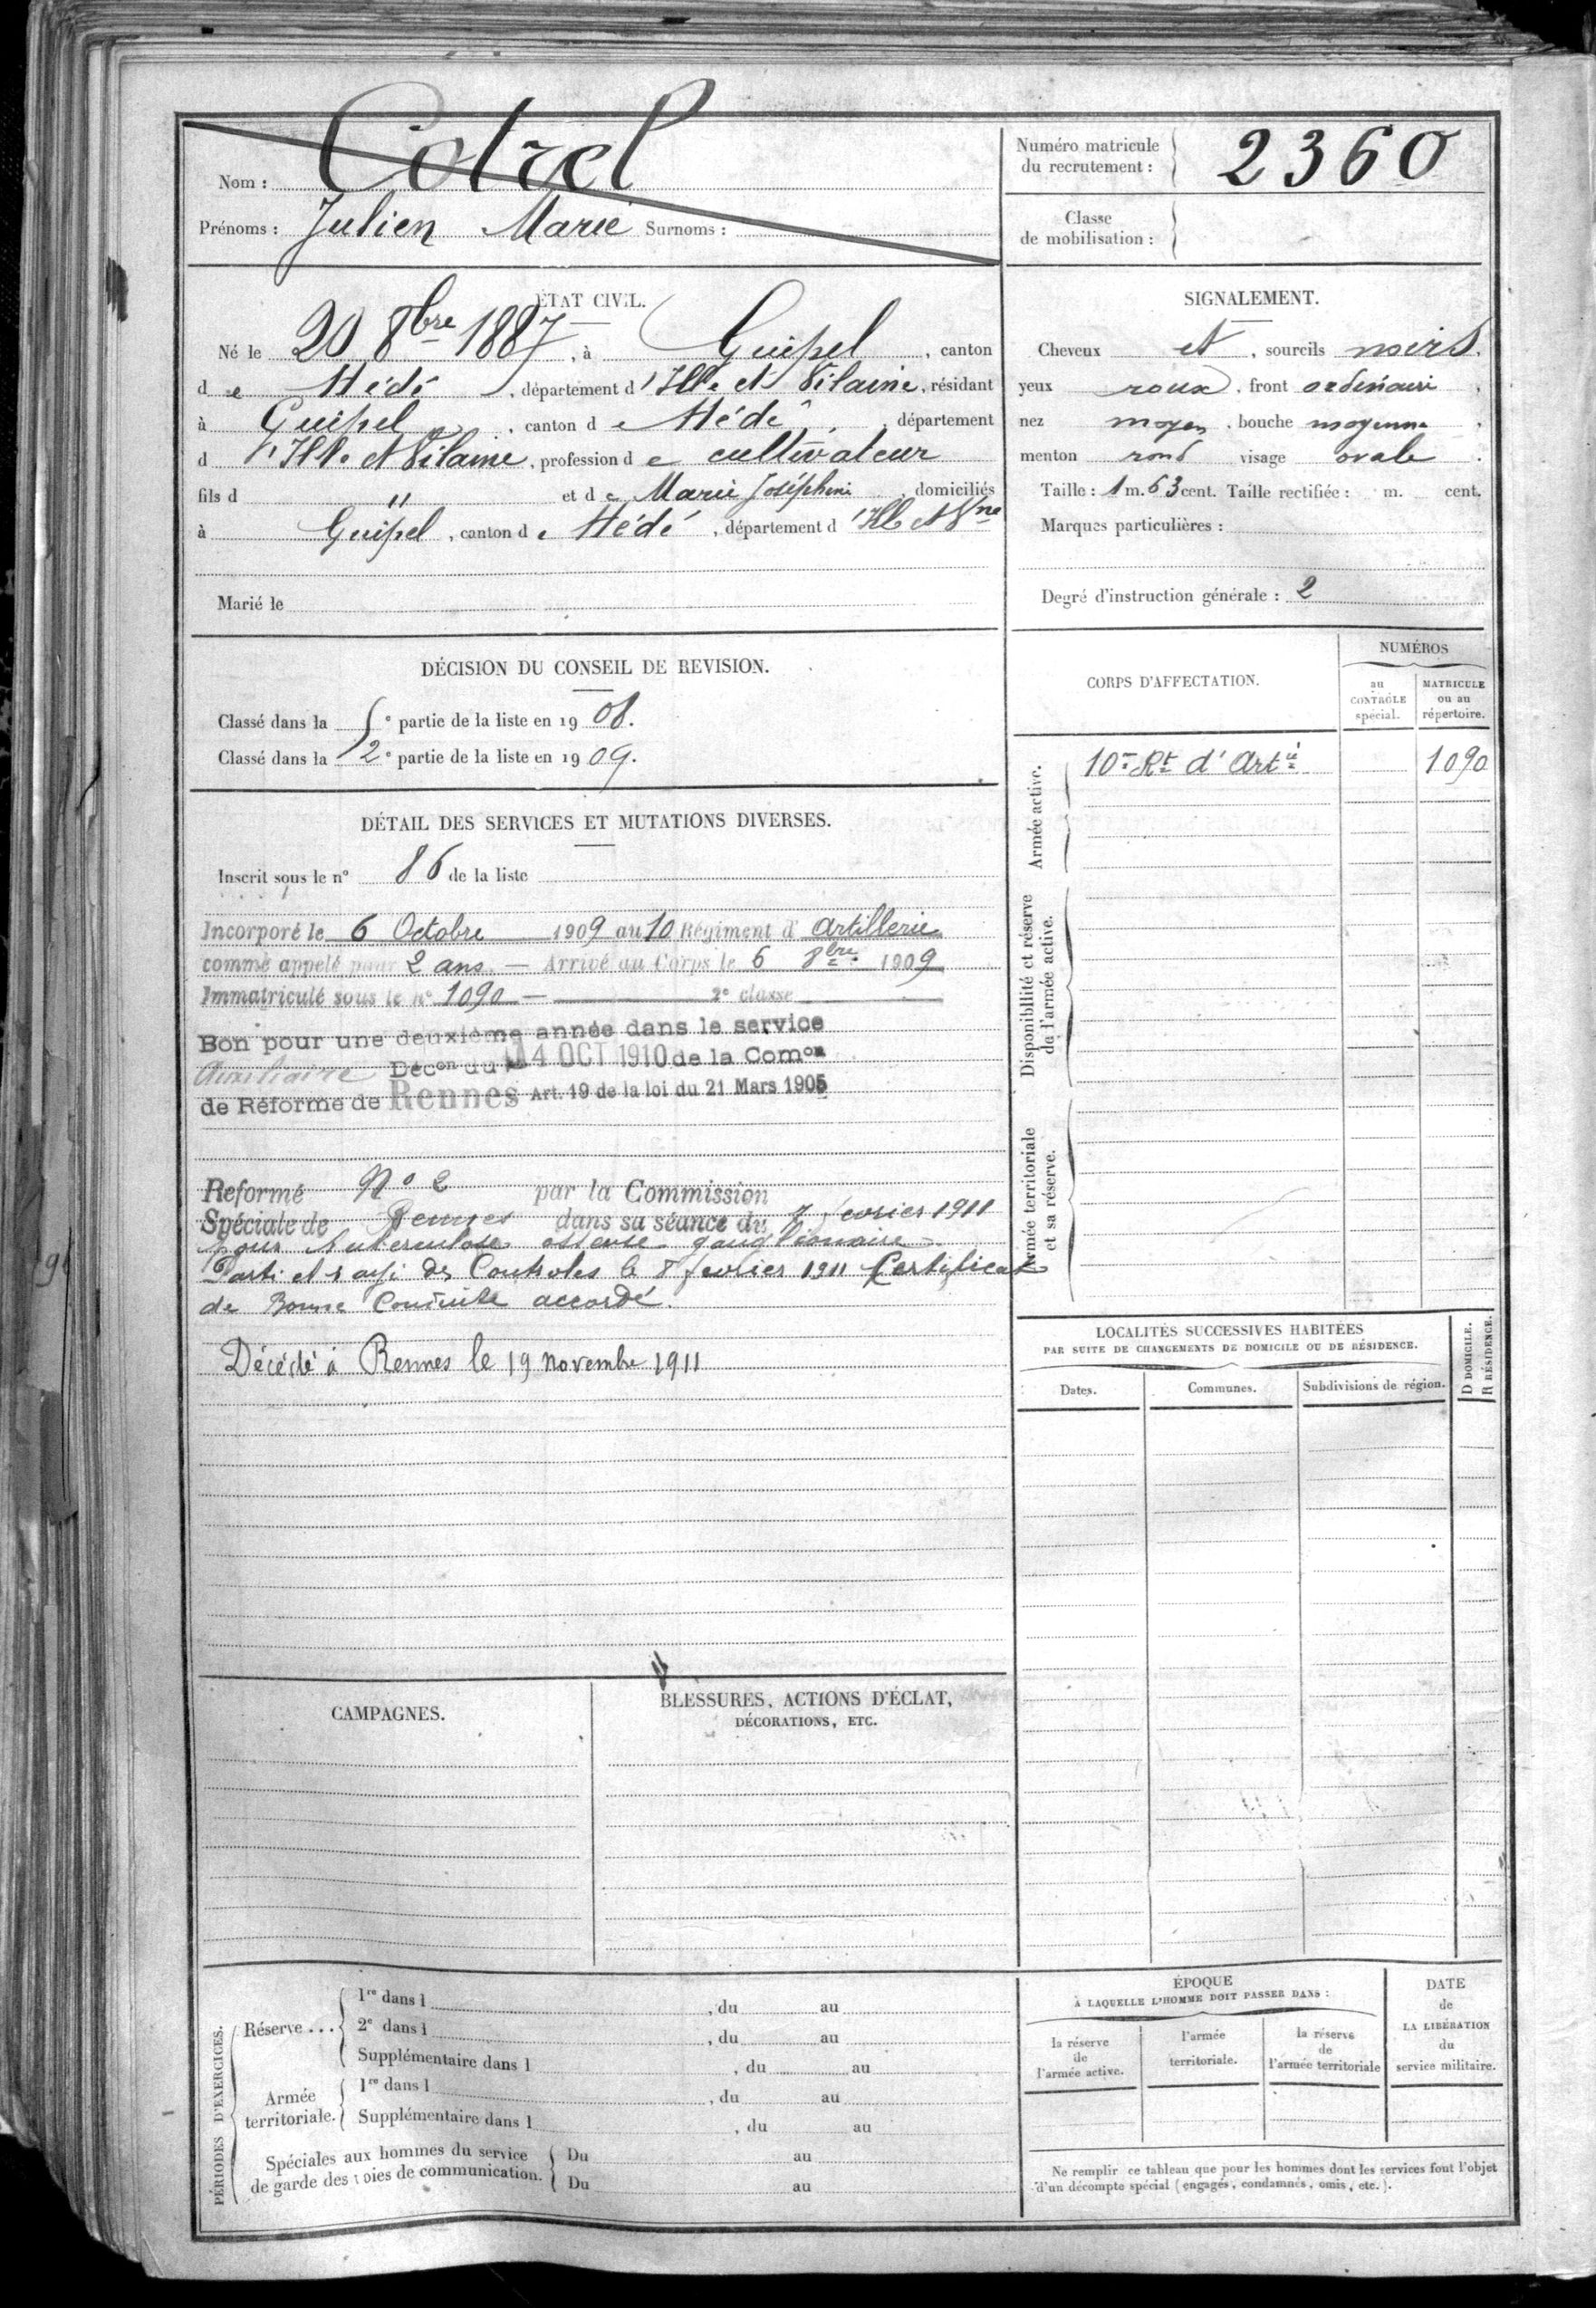 Nom : Cotrel
Prénoms : Julien Marie Surnoms :
Numéro matricule
du recrutement : 2360
Classe
de mobilisation :
ÉTAT CIVIL.
Né le 20 8bre 1887, à Guipel, canton
de Hédé, département d'Ille et Vilaine, résidant
à Guipel, canton de Hédé, département
d'Ille et Vilaine, profession de cultivateur
fils d " et de Marie Joséphine domiciliés
à Guipel, canton de Hédé, département d'Ille et Vne
Marié le
SIGNALEMENT.
Cheveux et, sourcils noirs.
yeux roux, front ordinaire,
nez moyen, bouche moyenne,
menton rond visage ovale.
Taille : 1 m. 63 cent. Taille rectifiée : m. cent.
Marques particulières :
Degré d'instruction générale : 2
DÉCISION DU CONSEIL DE REVISION.
Classé dans la 5e partie de la liste en 1908.
Classé dans la 2e partie de la liste en 1909.
DÉTAIL DES SERVICES ET MUTATIONS DIVERSES.
Inscrit sous le n° 86 de la liste
Incorporé le 6 Octobre 1909 au 10 Régiment d'Artillerie
comme appelé pour 2 ans. — Arrivé au Corps le 6 8bre 1909
Immatriculé sous le n° 1090 — 2e classe
Bon pour une deuxième année dans le service
Auxiliaire Décon du 14 OCT 1910 de la Comon
de Réforme de Rennes Art. 19 de la loi du 21 Mars 1905
Réformé N° 2 par la Commission
Spéciale de Rennes dans sa séance du 7 février 1911
pour tuberculose osseuse ganglionnaire
Parti et rayé des Controles le 8 février 1911 Certificat
de Bonne Conduite accordé.
Décédé à Rennes le 19 novembre 1911
CORPS D'AFFECTATION.
NUMÉROS
au
CONTRÔLE
spécial.
MATRICULE
ou au
répertoire.
Armée active.
10e Rt d'Artie 1090
Disponibilité et réserve
de l'armée active.
Armée territoriale
et sa réserve.
LOCALITÉS SUCCESSIVES HABITÉES
PAR SUITE DE CHANGEMENTS DE DOMICILE OU DE RÉSIDENCE.
D DOMICILE.
R RÉSIDENCE.
Dates. Communes. Subdivisions de région.
CAMPAGNES.
BLESSURES, ACTIONS D'ÉCLAT,
DÉCORATIONS, ETC.
PÉRIODES D'EXERCICES.
Réserve ...
1re dans l , du au
2e dans l , du au
Supplémentaire dans l , du au
Armée
territoriale.
1re dans l , du au
Supplémentaire dans l , du au
Spéciales aux hommes du service
de garde des voies de communication.
Du au
Du au
ÉPOQUE
À LAQUELLE L'HOMME DOIT PASSER DANS :
la réserve
de
l'armée active.
l'armée
territoriale.
la réserve
de
l'armée territoriale
DATE
de
LA LIBÉRATION
du
service militaire.
Ne remplir ce tableau que pour les hommes dont les services font l'objet
d'un décompte spécial (engagés, condamnés, omis, etc.).